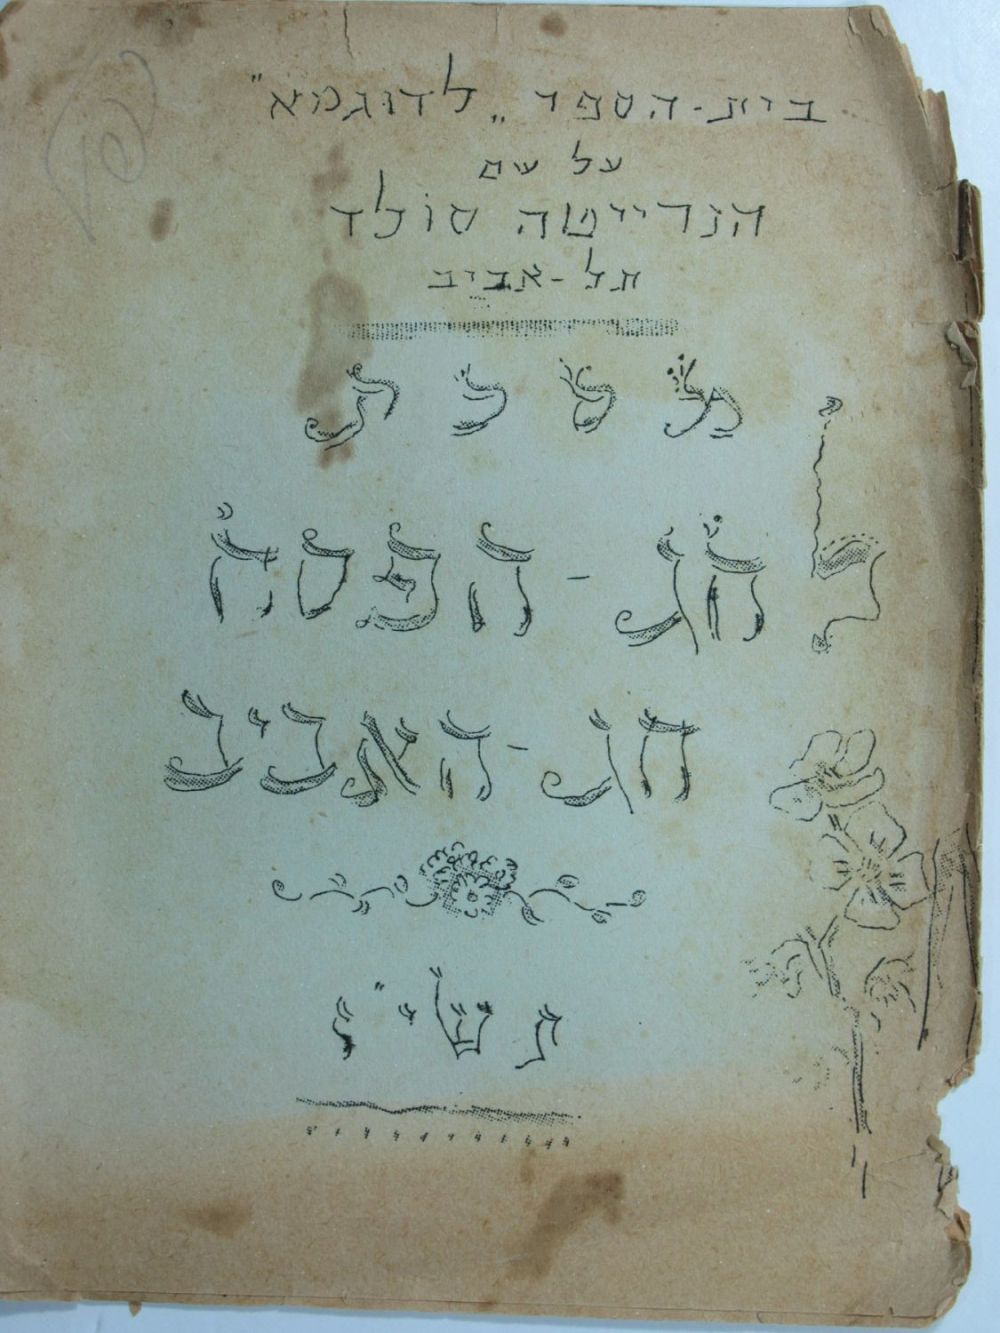 בית-הספר „לדוגמא"
על שם
הנרייטה סולד
תל-אביב
מסכת
חג - הפסח
חג - האביב